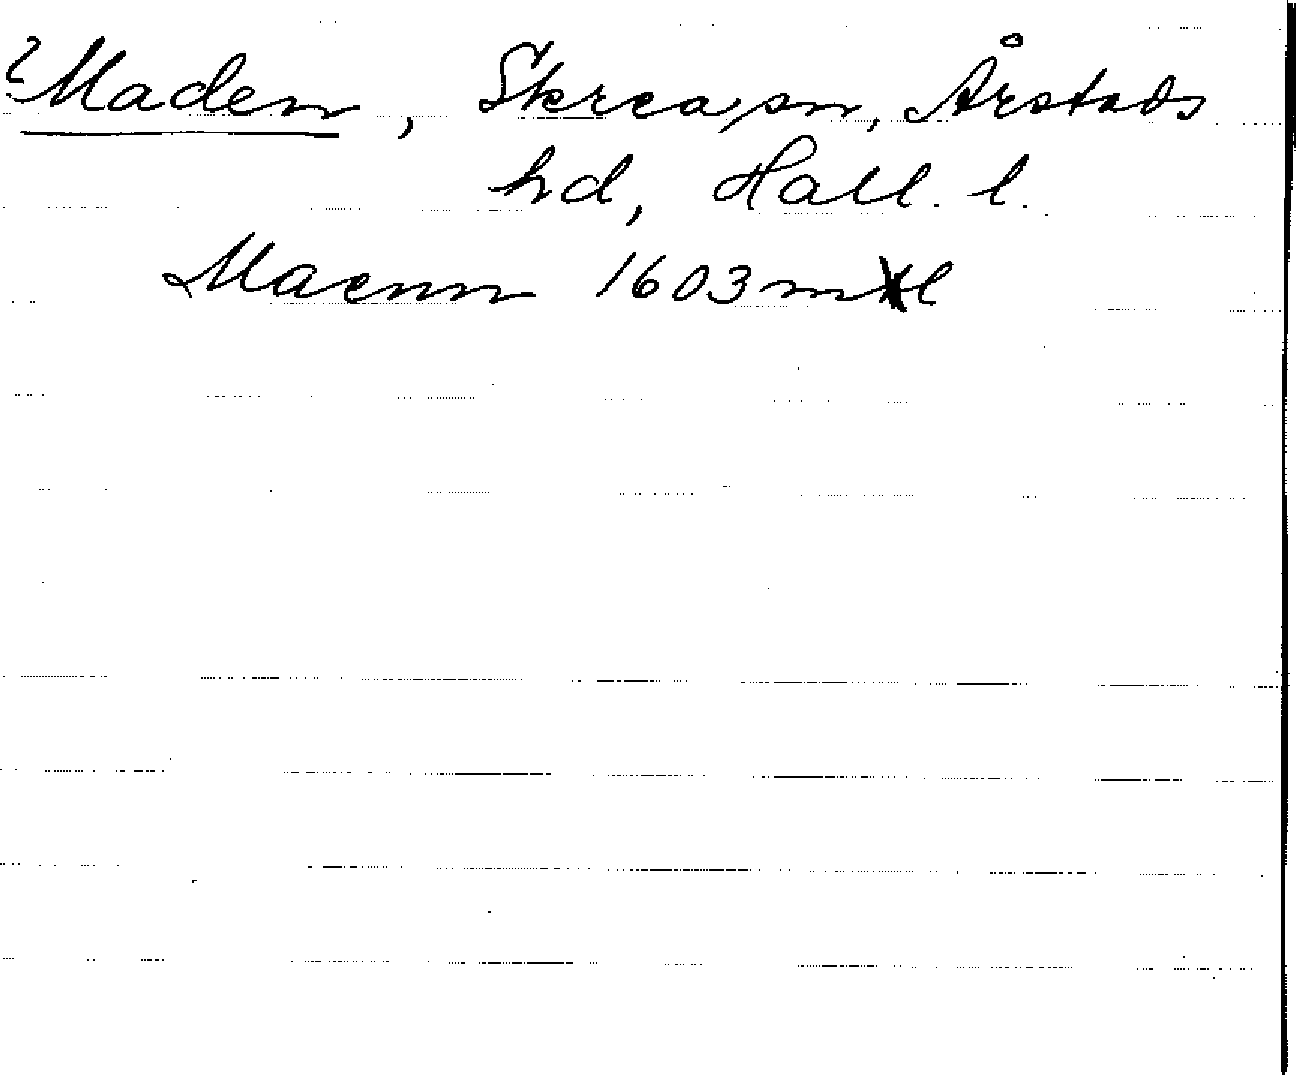 ? Maden, Skrea sn, Årstads
hd, Hall. l.
Maenn 1603 mtl